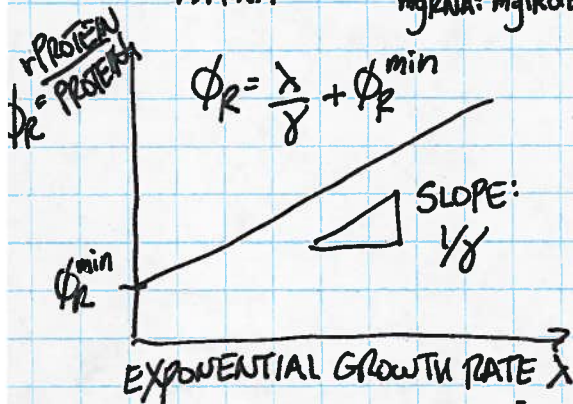 mgRNA: mg
rPROTEIN
ϕ_R = PROTEIN
ϕ_R = λ/γ + ϕ_R^min
SLOPE:
1/γ
ϕ_R^min
EXPONENTIAL GROWTH RATE λ